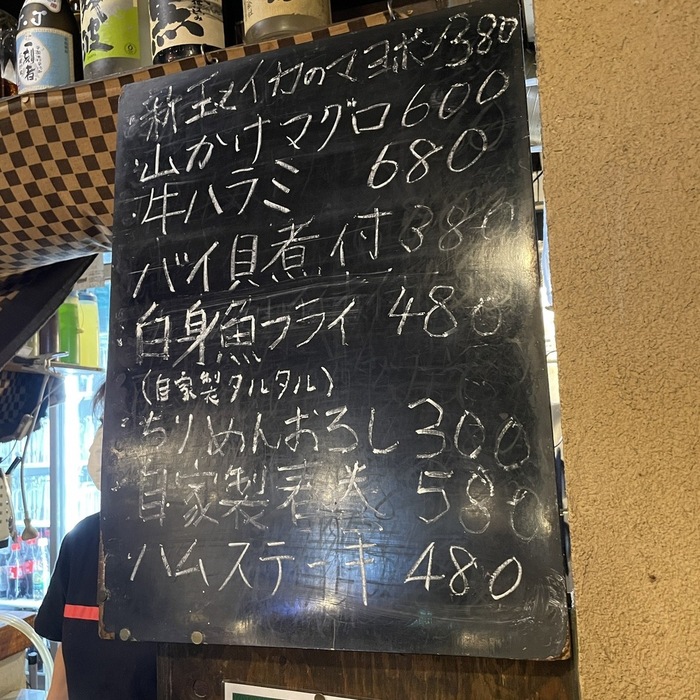 一刻者
新玉とイカのマヨポン 380
山かけマグロ 600
牛ハラミ 680
バイ貝煮付 380
白身魚フライ 480
(自家製タルタル)
ちりめんおろし 300
自家製春巻 580
ハムステーキ 480